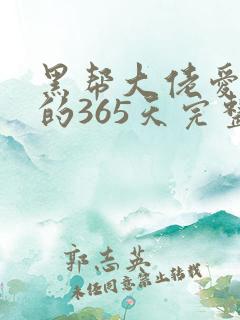 黑帮大佬爱
的365天完整
郭志英
未经同意禁止转载